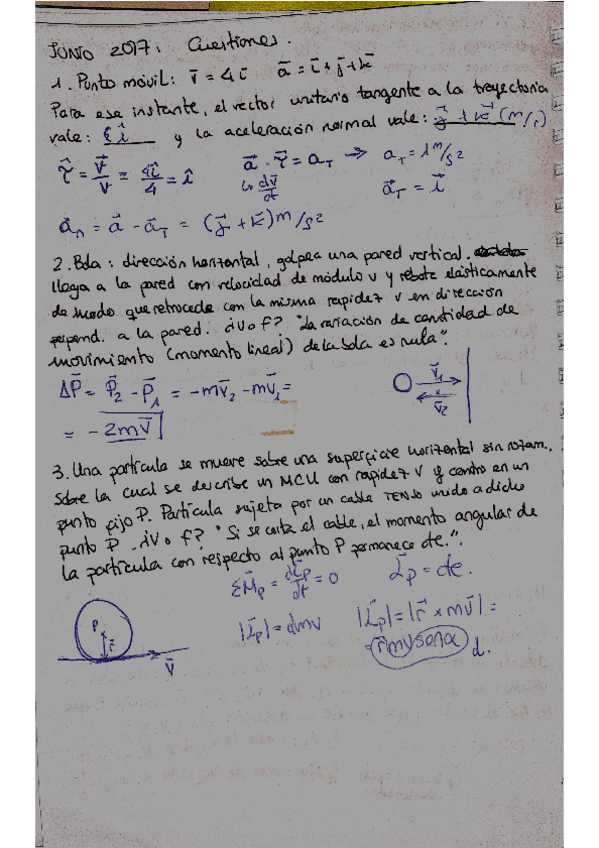 JUNIO 2017. Cuestiones.
1. Punto móvil: v⃗ = 4i⃗ a⃗ = i⃗ + j⃗ + k⃗
Para ese instante, el vector unitario tangente a la trayectoria
vale: i⃗ y la aceleración normal vale: j⃗ + k⃗
τ̂ = v⃗/v = 4i⃗/4 = î a⃗ · τ⃗ = a_T → a_T = 1 m/s²
↳ dv⃗/dt a⃗_T = i⃗
a⃗_n = a⃗ - a⃗_T = (j⃗ + k⃗) m/s²
2. Bola: dirección horizontal, golpea una pared vertical.
llega a la pared con velocidad de módulo v y rebota elásticamente
de modo que retrocede con la misma rapidez v en dirección
perpend. a la pared. ¿V o f? "La variación de cantidad de
movimiento (momento lineal) de la bola es nula".
ΔP⃗ = P⃗₂ - P⃗₁ = -mv⃗₂ - mv⃗₁ =
= -2mv⃗
v⃗₁
v⃗₂
3. Una partícula se mueve sobre una superficie horizontal sin rozam.,
sobre la cual se describe un MCU con rapidez v y centro en un
punto fijo P. Partícula sujeta por un cable TENSO unido a dicho
punto P. ¿V o f? "Si se corta el cable, el momento angular de
la partícula con respecto al punto P permanece cte.".
ΣM⃗p = dL⃗p/dt = 0 L⃗p = cte.
|L⃗p| = dmv |L⃗p| = |r⃗ × mv⃗| =
= rmv senα d.
P
r⃗
v⃗